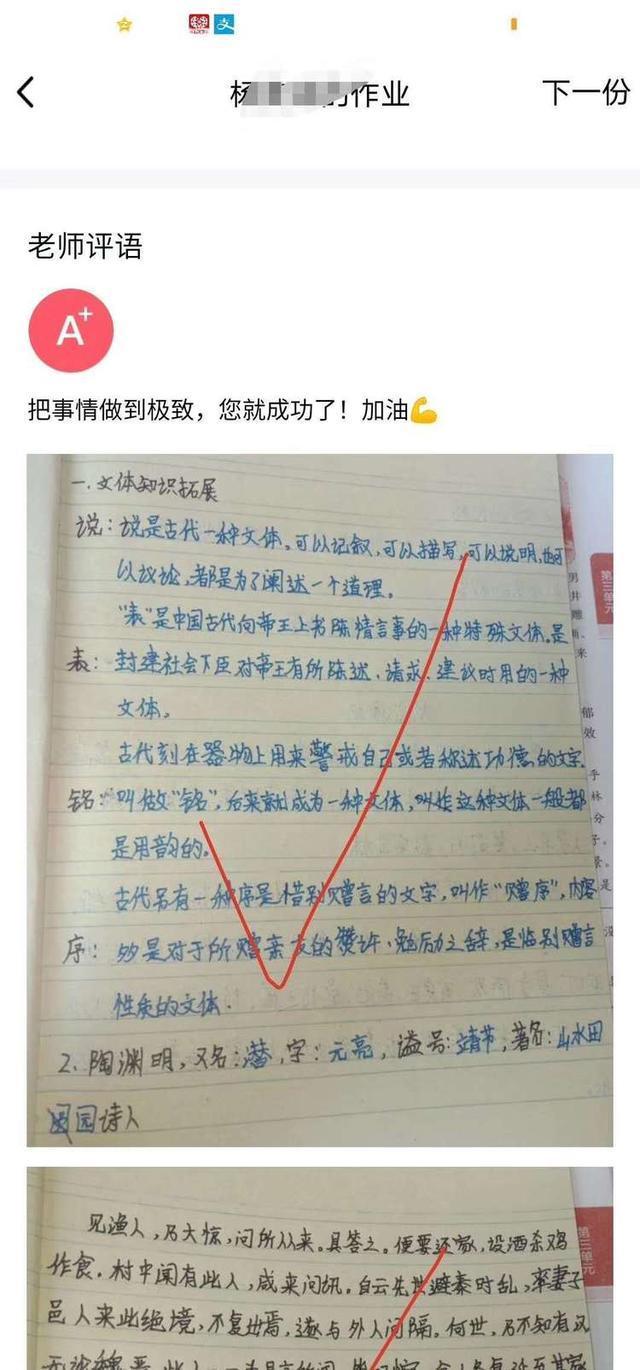 杨 的作业
下一份
老师评语
A+
把事情做到极致，您就成功了！加油💪
一.文体知识拓展
说：说是古代一种文体。可以记叙，可以描写，可以说明，也可
以议论，都是为了阐述一个道理。
"表"是中国古代向帝王上书陈情言事的一种特殊文体。是
表：封建社会下臣对帝王有所陈述、请求、建议时用的一种
文体。
古代刻在器物上用来警戒自己或者称述功德的文字
铭：叫做"铭"，后来就成为一种文体，这种文体一般都
是用韵的。
古代另有一种序是惜别赠言的文字，叫作"赠序"，内容
序：多是对于所赠亲友的赞许、勉励之辞，是临别赠言
性质的文体.
2.陶渊明，又名：潜，字：元亮，谥号：靖节，著名：山水田
园诗人
第三单元
见渔人，乃大惊，问所从来。具答之。便要还家，设酒杀鸡
作食。村中闻有此人，咸来问讯。自云先世避秦时乱，率妻子
邑人来此绝境，不复出焉，遂与外人间隔。何世，乃不知有汉
第三单元